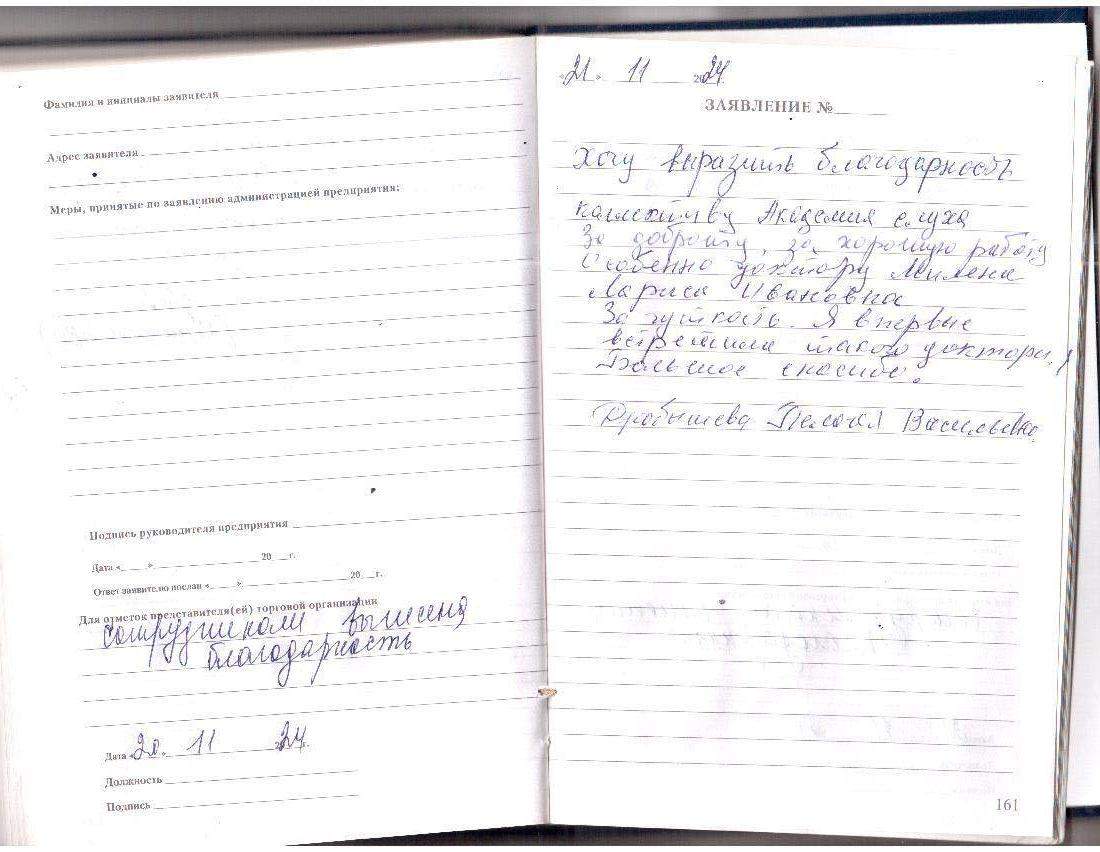 Фамилия и инициалы заявителя
Адрес заявителя
Меры, принятые по заявлению администрацией предприятия:
Подпись руководителя предприятия
Дата « » 20 г.
Ответ заявителю послан « » 20 г.
Для отметок представителя(ей) торговой организации
сотрудникам вынесена
благодарность
Дата «20» 11 2024 г.
Должность
Подпись
«21» 11 2024
ЗАЯВЛЕНИЕ №
Хочу выразить благодарность
коллективу Академия слуха
За доброту, за хорошую работу
Особенно доктору Милена
Лариса Ивановна
За чуткость. Я впервые
встретила такого доктора.
Большое спасибо.
Дробышева Васильевна
161